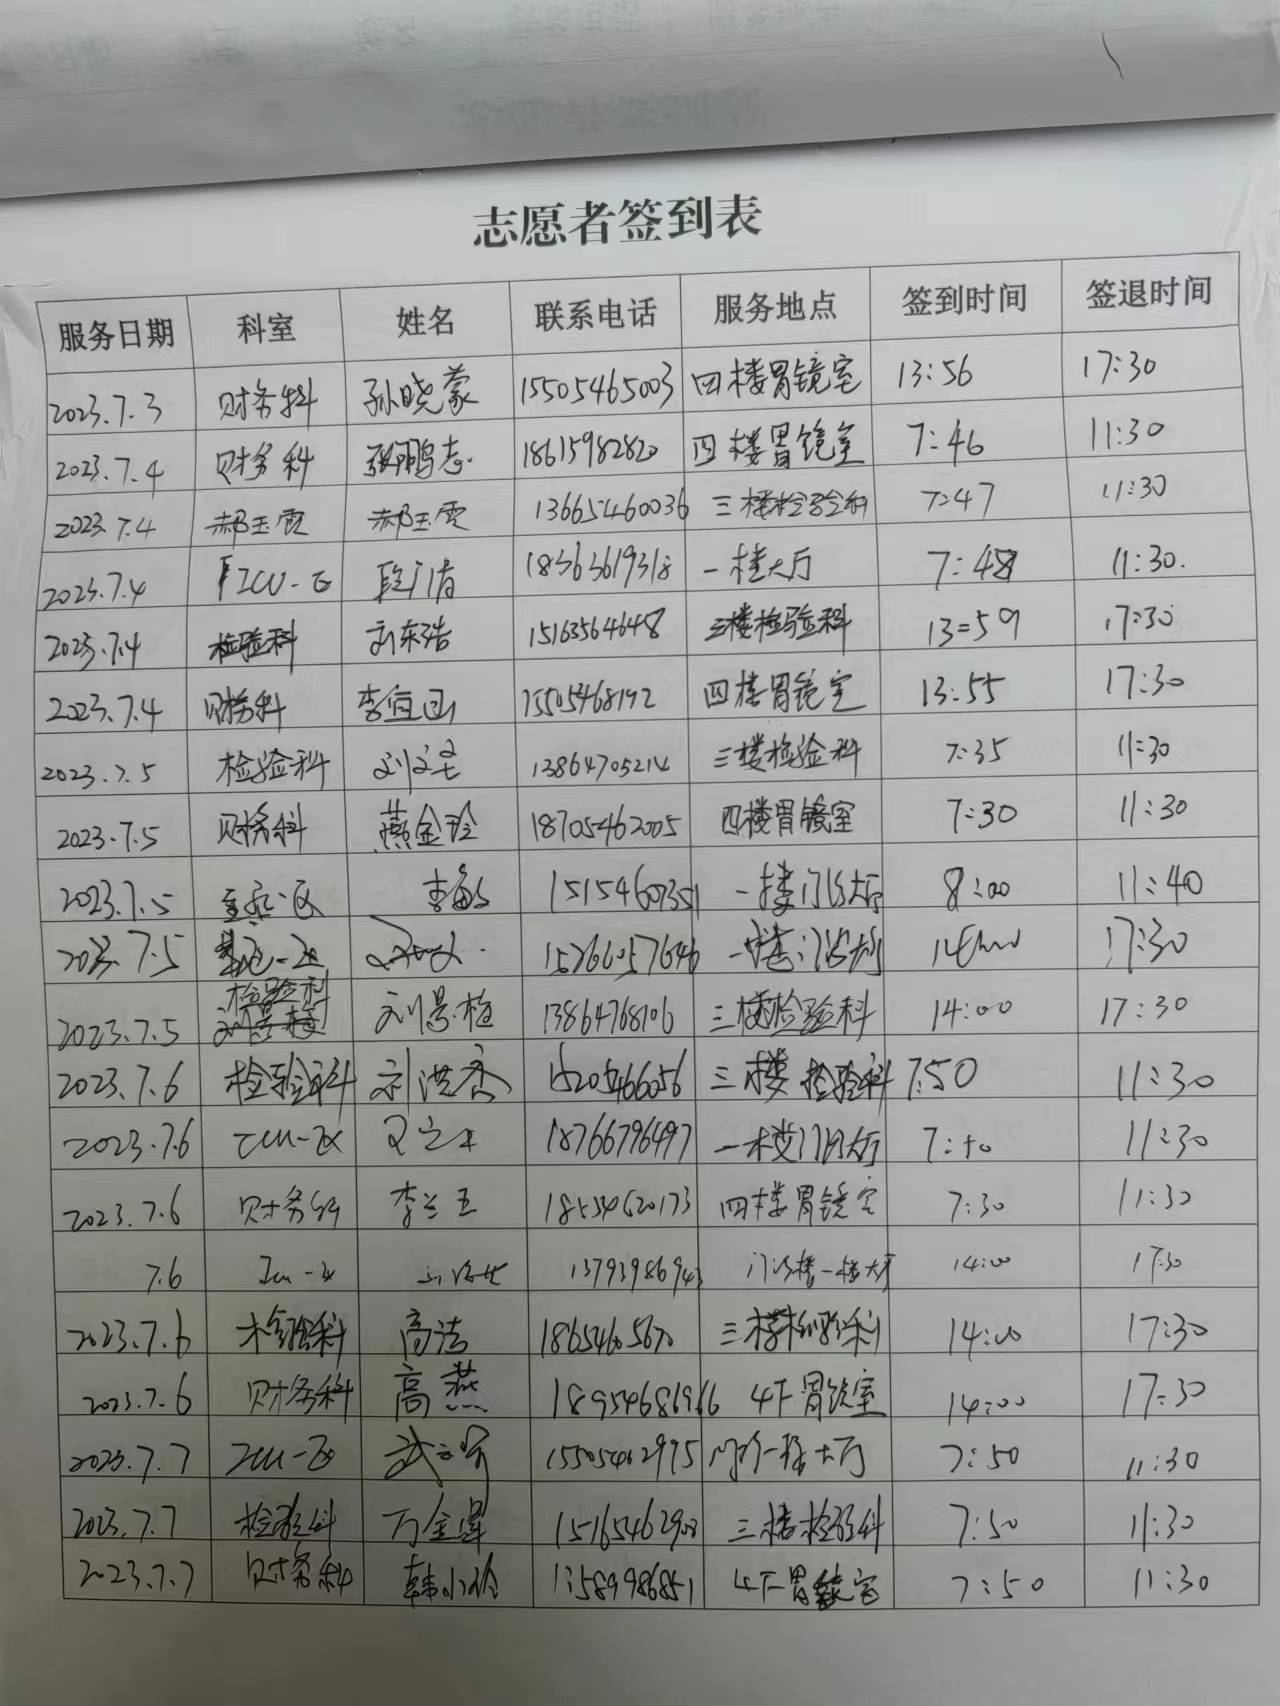 志愿者签到表
服务日期 科室 姓名 联系电话 服务地点 签到时间 签退时间
2023.7.3 财务科 孙晓蒙 15505465003 四楼胃镜室 13:56 17:30
2023.7.4 财务科 张鹏志 18615982820 四楼胃镜室 7:46 11:30
2023.7.4 郝玉霞 郝玉霞 13665460036 三楼检验科 7:47 11:30
2023.7.4 ICU一区 18363619318 一楼大厅 7:48 11:30
2023.7.4 检验科 刘东浩 三楼检验科 13:59 17:30
2023.7.4 财务科 李宜 15505468192 四楼胃镜室 13:55 17:30
2023.7.5 检验科 13864705214 三楼检验科 7:35 11:30
2023.7.5 财务科 燕金玲 18705462005 四楼胃镜室 7:30 11:30
2023.7.5 李敏 15154607351 一楼门诊大厅 8:00 11:40
2023.7.5 一楼门诊大厅 17:30
2023.7.5 检验科 刘景梅 13864768106 三楼检验科 14:00 17:30
2023.7.6 检验科 刘洪杰 15205466056 三楼检验科 7:50 11:30
2023.7.6 ICU一区 18766796497 一楼门诊大厅 11:30
2023.7.6 财务科 李兰玉 18554620173 四楼胃镜室 7:30 11:30
7.6 ICU一区 13793986943 门诊楼一楼大厅 14:00 17:30
2023.7.6 检验科 高洁 18654605670 三楼检验科 14:00 17:30
2023.7.6 财务科 高燕 18954686966 4F胃镜室 14:00 17:30
2023.7.7 ICU一区 15505462975 门诊一楼大厅 7:50 11:30
2023.7.7 检验科 万金晕 15165462908 三楼检验科 7:50 11:30
2023.7.7 财务科 韩小玲 13589986851 4F胃镜室 7:50 11:30